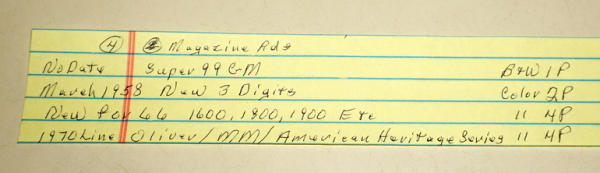 ④ Magazine Ads
No Date Super 99 GM B+W 1P
March 1958 New 3 Digits Color 2P
New for 66 1600, 1800, 1900 Etc 11 4P
1970 Line Oliver/MM/American Heritage Series 11 4P